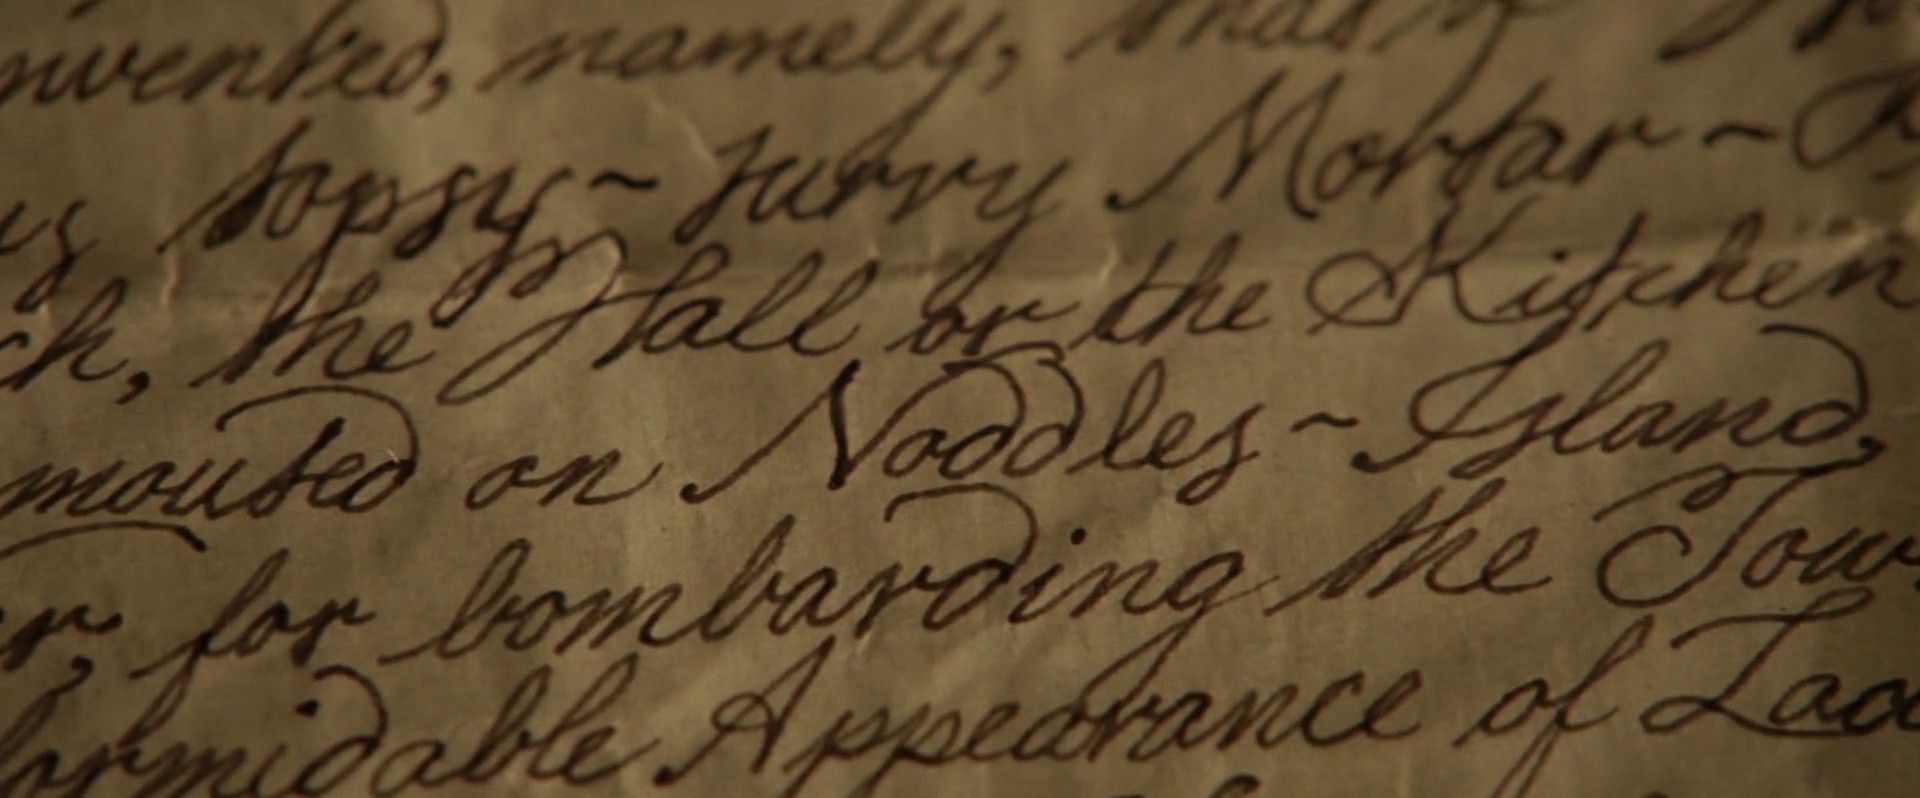 nvented, namely, that
us topsy-turvy Mortar-
ch, the Hall or the Kitchen
mouted on Noddles-Island,
er, for bombarding the Tow
formidable Appearance of Lad